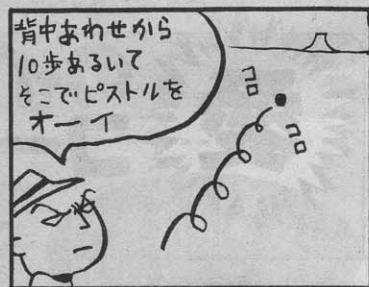 背中あわせから
10歩あるいて
そこでピストルを
オーイ
コロ
コロ